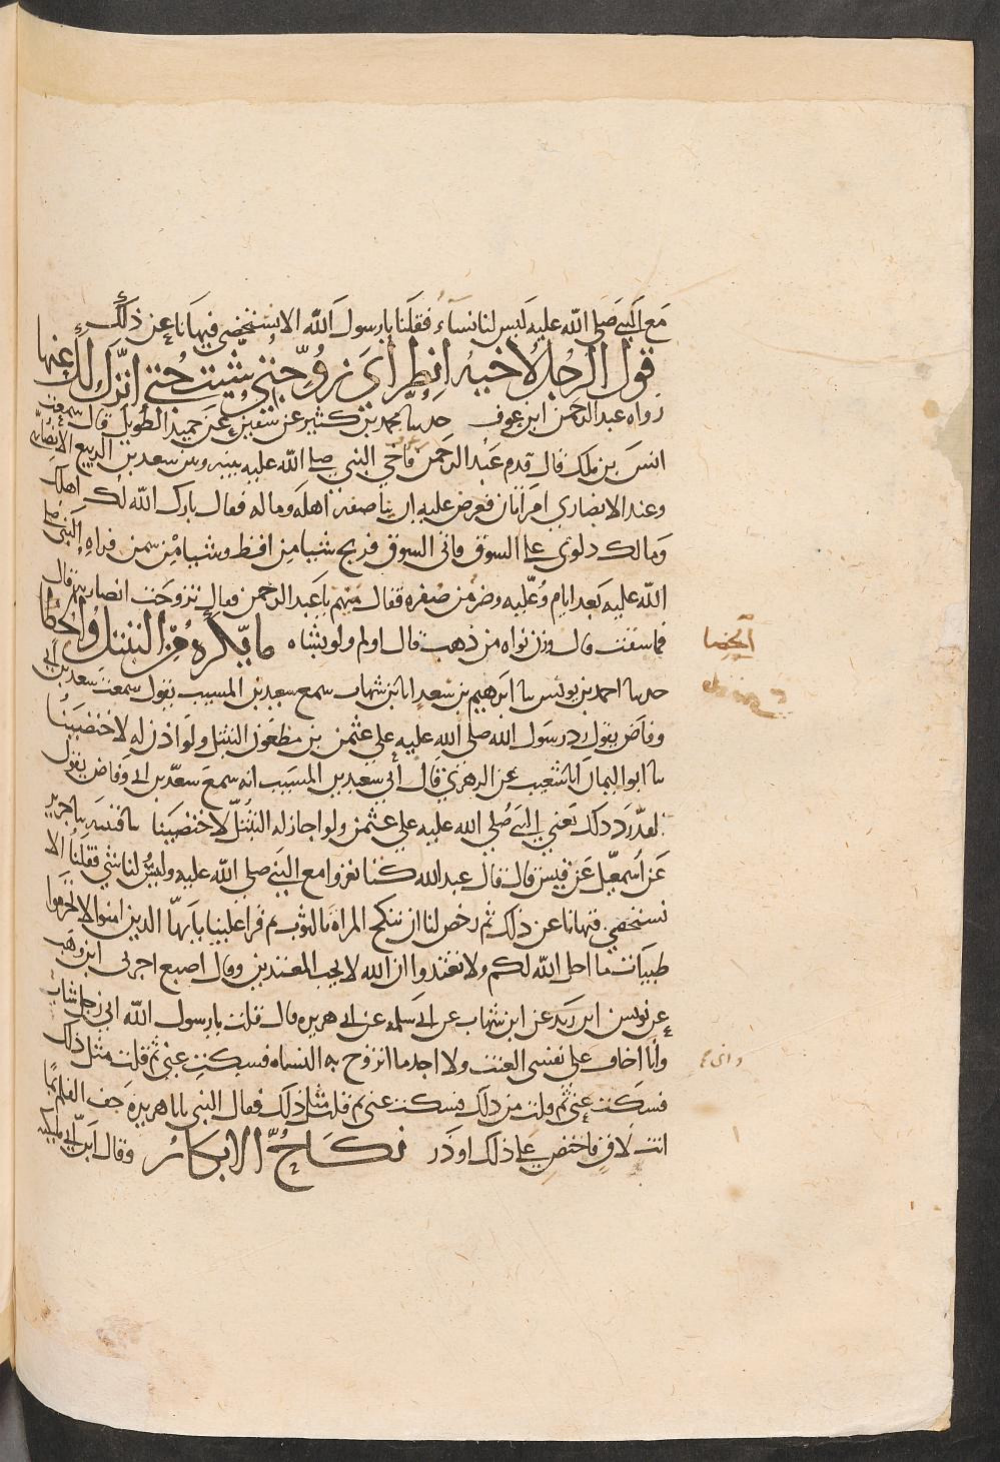 مع النبي صلى الله عليه ليس لنا نساء فقلنا يا رسول الله الا نستخصي فنهانا عن ذلك
قول الرجل لاخيه انظر اي زوجتي شيت حتى انزل لك عنها
رواه عبد الرحمن ابن عوف حدثنا محمد بن كثير عن سفين عن حميد الطويل قال سمعت
انس بن ملك قال قدم عبد الرحمن فاخي النبي صلى الله عليه بينه وبين سعد بن الربيع الانصاري
وعند الانصاري امراتان فعرض عليه ان يناصفه اهله وماله فقال بارك الله لك اهلك
ومالك دلوني على السوق فاتى السوق فربح شيا من اقط وشيا من سمن فراه النبي صلى
الله عليه بعد ايام وعليه وضر من صفره فقال مهيم يا عبد الرحمن فقال تزوجت انصاريه قال
فما سقت قال وزن نواه من ذهب قال اولم ولو بشاه ما يكره من التبتل والخصا
حدثنا احمد بن يونس نا ابرهيم بن سعد انا ابن شهاب سمع سعيد بن المسيب يقول سمعت سعد بن ابي
وقاص يقول رد رسول الله صلى الله عليه على عثمن بن مظعون التبتل ولو اذن له لاختصينا
نا ابو اليمان انا شعيب عن الزهري قال اني سعيد بن المسيب انه سمع سعد بن ابي وقاص يقول
لقد رد ذلك يعني النبي صلى الله عليه على عثمن ولو اجاز له التبتل لاختصينا نا قتيبه نا جرير
عن اسمعيل عن قيس قال قال عبد الله كنا نغزوا مع النبي صلى الله عليه وليس لنا شي فقلنا الا
نستخصي فنهانا عن ذلك ثم رخص لنا ان ننكح المراه بالثوب ثم قرا علينا يا ايها الذين امنوا لا تحرموا
طيبات ما احل الله لكم ولا تعتدوا ان الله لا يحب المعتدين وقال اصبغ اخبرني ابن وهب
عن يونس ابن يزيد عن ابن شهاب عن ابي سلمه عن ابي هريره قال قلت يا رسول الله اني رجل شاب
وانا اخاف على نفسي العنت ولا اجد ما اتزوج به النساء فسكت عني ثم قلت مثل ذلك
فسكت عني ثم قلت من ذلك فسكت عني ثم قلت مثل ذلك فقال النبي يا ابا هريره جف القلم بما
انت لاق فاختص على ذلك او ذر نكاح الابكار وقال ابن ابي مليكه
الخصا
واني